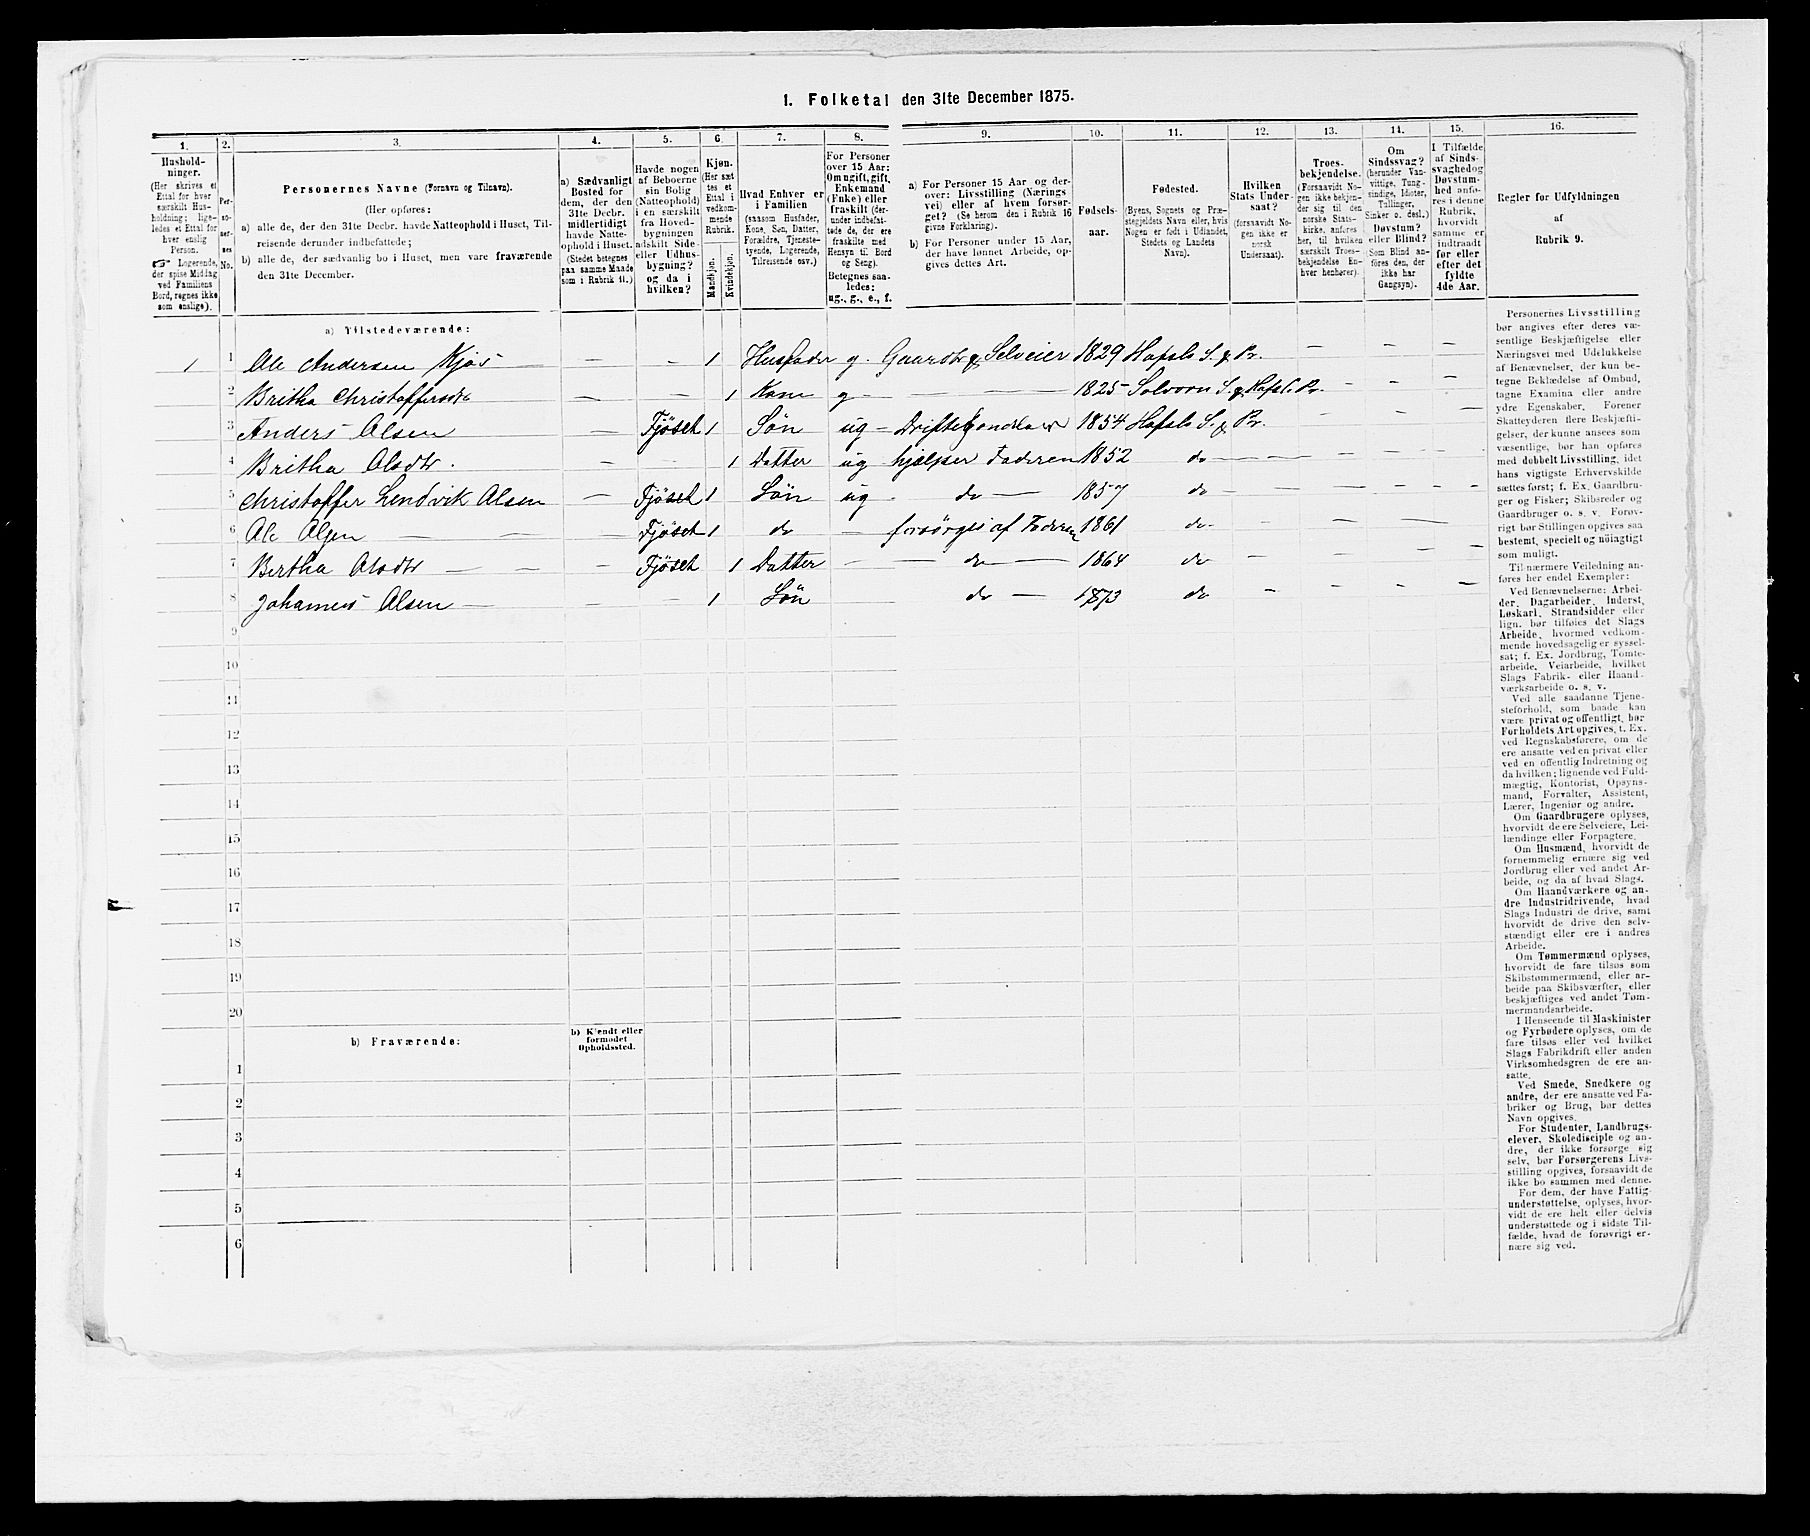 1. Folketal den 31te December 1875.
1. 2. 3. 4. 5. 6. 7. 8. 9. 10. 11. 12. 13. 14. 15. 16.
Hushold-
ninger.
(Her skrives et
Ettal for hver
særskilt Hus-
holdning; lige-
ledes et Ettal for
hver enslig
Person.
☞ Logerende,
der spise Middag
ved Familiens
Bord, regnes ikke
som enslige).
Per-
so-
ner-
nes
No.
Personernes Navne (Fornavn og Tilnavn).
(Her opføres:
a) alle de, der den 31te Decbr. havde Natteophold i Huset, Til-
reisende derunder indbefattede;
b) alle de, der sædvanlig bo i Huset, men vare fraværende
den 31te December.
a) Sædvanligt
Bosted for
dem, der den
31te Decbr.
midlertidigt
havde Natte-
ophold i Huset.
(Stedet betegnes
paa samme Maade
som i Rubrik 11.)
Havde nogen
af Beboerne
sin Bolig
(Natteophold)
i en særskilt
fra Hoved-
bygningen
adskilt Side-
eller Udhus-
bygning?
og da i
hvilken?
Kjøn.
(Her sæt
tes et
Ettal i
vedkom-
mende
Rubrik.
Mandkjøn.
Kvindekjøn.
Hvad Enhver er
i Familien
(saasom Husfader,
Kone, Søn, Datter,
Forældre, Tjeneste-
tyende, Logerende,
Tilreisende osv.)
For Personer
over 15 Aar:
Om ugift, gift,
Enkemand
(Enke) eller
fraskilt (der-
under indbefat-
tede de, der ere
fraskilte med
Hensyn til Bord
og Seng).
Betegnes saa-
ledes:
ug., g., e., f.
a) For Personer 15 Aar og der-
over: Livsstilling (Nærings
vei) eller af hvem forsør-
get? (Se herom den i Rubrik 16
givne Forklaring).
b) For Personer under 15 Aar,
der have lønnet Arbeide, op-
gives dettes Art.
Fødsels-
aar.
Fødested.
(Byens, Sognets og Præ-
stegjeldets Navn eller, hvis
Nogen er født i Udlandet,
Stedets og Landets
Navn).
Hvilken
Stats Under-
saat?
(forsaavidt No-
gen ikke er
norsk
Undersaat).
Troes-
bekjendelse.
(Forsaavidt No-
gen ikke bekjen-
der sig til den
norske Stats-
kirke, anføres
her, til hvilken
særskilt Troes-
bekjendelse En-
hver henhører).
Om
Sindssvag?
(herunder Van-
vittige, Tung-
sindige, Idioter,
Tullinger,
Sinker o. desl.)
Døvstum?
eller Blind?
(Som Blind an-
føres den, der
ikke har
Gangsyn).
I Tilfælde
af Sinds-
svaghedog
Døvstum-
hed anfø-
res i denne
Rubrik,
hvorvidt
samme er
indtraadt
før eller
efter det
fyldte
4de Aar.
Regler for Udfyldningen
af
Rubrik 9.
a) Tilstedeværende:
1 1 Ole Andersen Kjös — — 1 Husfader g. Gaardbr og Selveier 1829 Hafslo S. & Pr. — — — —
2 Britha Christoffersdtr — — 1 Kone g — 1825 Solvorn S. & Hafslo Pr. — — —
3 Anders Olsen — Fjöset 1 Søn ug — 1854 Hafslo S. & Pr. — — — —
4 Britha Olsdtr. — — 1 Datter ug hjelper Faderen 1852 do — — — —
5 Christoffer Lendvik Olsen — Fjöset 1 Søn ug do 1857 do — — — — —
6 Ole Olsen — — — Fjöset 1 do — forsörges af Faderen 1861 do — — — —
7 Bertha Olsdtr — — — Fjöset 1 Datter — — do — 1864 do — — — —
8 Johannes Olsen — — — 1 Søn do — 1873 do — — — —
9
10
11
12
13
14
15
16
17
18
19
20
b) Fraværende:
b) Kjendt eller
formodet
Opholdssted.
1
2
3
4
5
6
Personernes Livsstilling
bør angives efter deres væ-
sentlige Beskjæftigelse eller
Næringsvei med Udelukkelse
af Benævnelser, der kun be-
tegne Beklædelse af Ombud,
tagne Examina eller andre
ydre Egenskaber. Forener
Skatteyderen flere Beskjæfti-
gelser, der kunne ansees som
væsentlige, bør han opføres
med dobbelt Livsstilling, idet
hans vigtigste Erhvervskilde
sættes først; f. Ex. Gaardbru-
ger og Fisker; Skibsreder og
Gaardbruger o. s. v. Forøv-
rigt bør Stillingen opgives saa
bestemt, specielt og nøiagtigt
som muligt.
Til nærmere Veiledning an-
føres her endel Exempler:
Ved Benævnelserne: Arbei-
der, Dagarbeider, Inderst,
Løskarl, Strandsidder eller
lign. bør tilføies det Slags
Arbeide, hvormed vedkom-
mende hovedsagelig er syssel-
sat; f. Ex. Jordbrug, Tomte-
arbeide, Veiarbeide, hvilket
Slags Fabrik- eller Haand-
værksarbeide o. s. v.
Ved alle saadanne Tjene-
steforhold, som baade kan
være privat og offentligt, bør
Forholdets Art opgives, t. Ex.
ved Regnskabsførere, om de
ere ansatte ved en privat eller
ved en offentlig Indretning og
da hvilken; lignende ved Fuld-
mægtig, Kontorist, Opsyns-
mand, Forvalter, Assistent,
Lærer, Ingeniør og andre.
Om Gaardbrugere oplyses,
hvorvidt de ere Selveiere, Lei-
lændinge eller Forpagtere.
Om Husmænd, hvorvidt de
fornemmelig ernære sig ved
Jordbrug eller ved andet Ar-
beide, og da af hvad Slags.
Om Haandværkere og an-
dre Industridrivende, hvad
Slags Industri de drive, samt
hvorvidt de drive den selv-
stændigt eller ere i andres
Arbeide.
Om Tømmermænd oplyses,
hvorvidt de fare tilsøs som
Skibstømmermænd, eller ar-
beide paa Skibsværfter, eller
beskjæftiges ved andet Tøm-
mermandsarbeide.
I Henseende til Maskinister
og Fyrbødere oplyses, om de
fare tilsøs eller ved hvilket
Slags Fabrikdrift eller anden
Virksomhedsgren de ere an-
satte.
Ved Smede, Snedkere og
andre, der ere ansatte ved Fa-
briker og Brug, bør dettes
Navn opgives.
For Studenter, Landbrugs-
elever, Skoledisciple og an-
dre, der ikke forsørge sig
selv, bør Forsørgerens Livs-
stilling opgives, forsaavidt de
ikke bo sammen med denne.
For dem, der have Fattig-
understøttelse, oplyses, hvor-
vidt de ere helt eller delvis
understøttede og i sidste Til-
fælde, hvad de forøvrigt er-
nære sig ved.